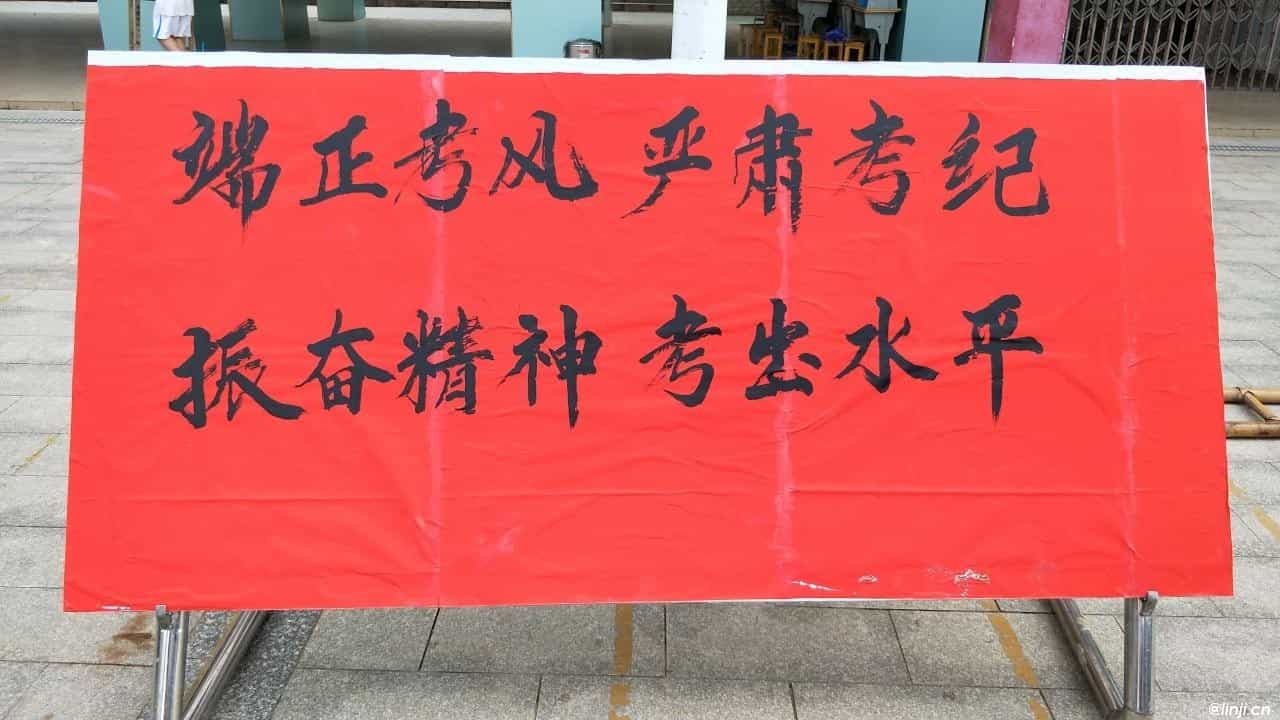 端正考风 严肃考纪
振奋精神 考出水平
@linji.cn